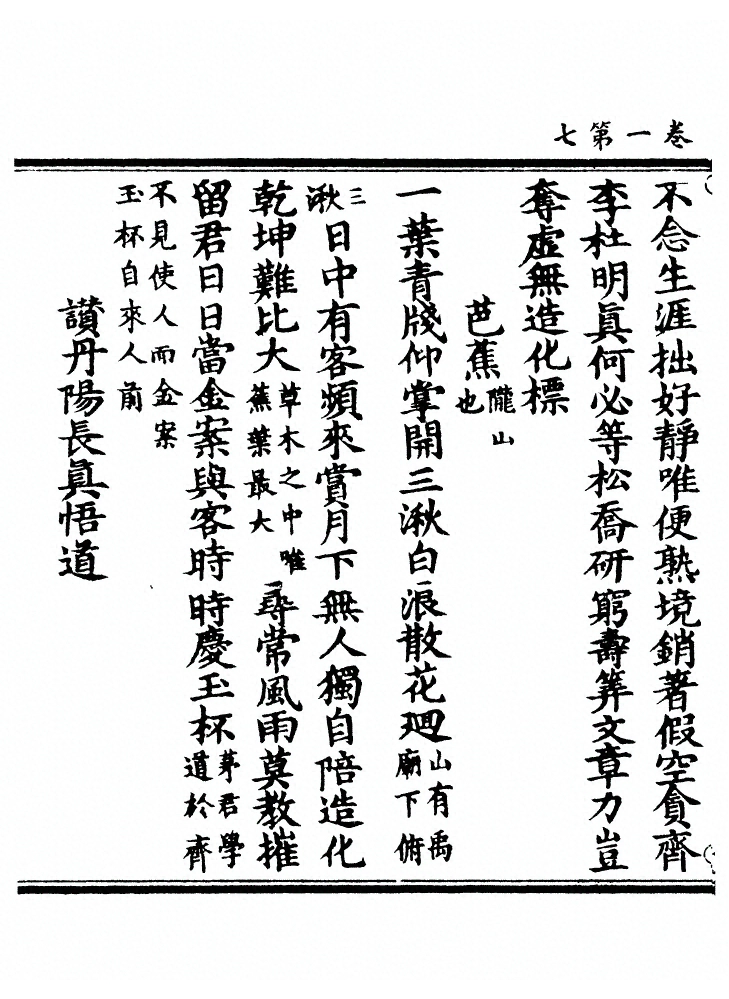 卷一第七
不念生涯拙好靜唯便熟境銷著假空貪齊
李杜明眞何必等松喬研窮壽筭文章力豈
奪虛無造化標
芭蕉隴山也
一葉青牋仰掌開三湫白浪散花廻山有禹廟下俯
三湫日中有客頻來賞月下無人獨自陪造化
乾坤難比大草木之中唯蕉葉最大尋常風雨莫教摧
留君日日當金案與客時時慶玉杯茅君學道於齊
不見使人而金案玉杯自來人前
讚丹陽長眞悟道